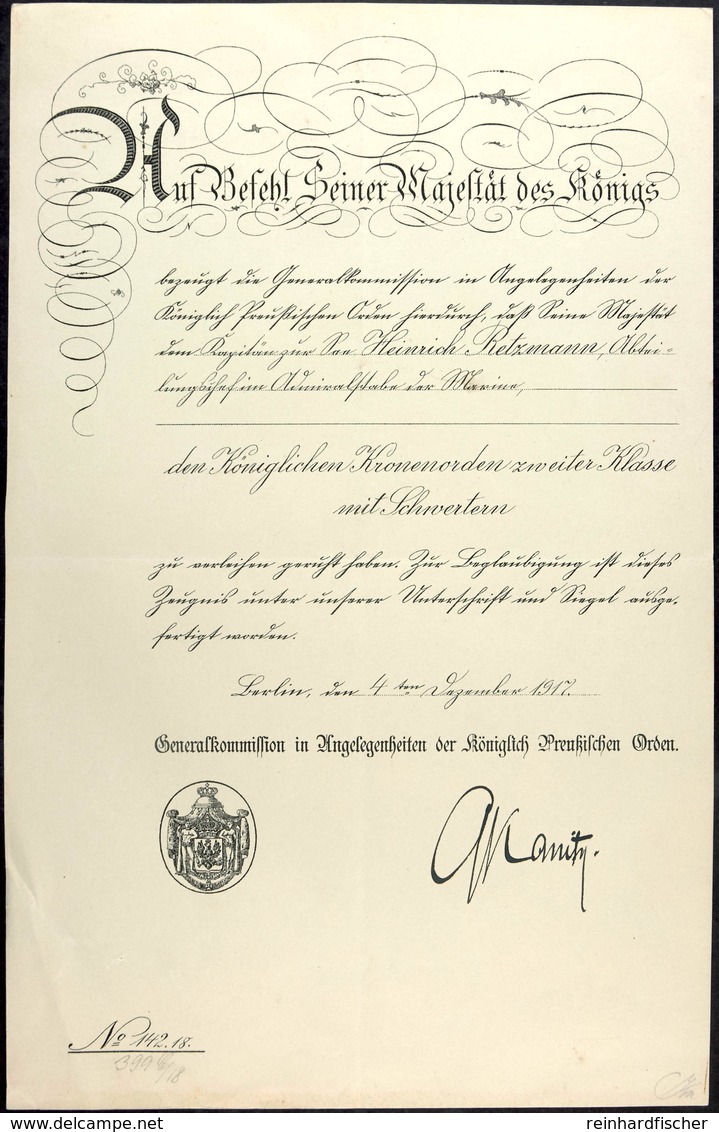 Auf Befehl Seiner Majestät des Königs
bezeugt die Generalkommission in Angelegenheiten der
Königlich Preußischen Orden hierdurch, daß Seine Majestät
dem Kapitän zur See Heinrich Retzmann, Abtei-
lungschef im Admiralstabe der Marine,
den Königlichen Kronenorden zweiter Klasse
mit Schwertern
zu verleihen geruht haben. Zur Beglaubigung ist dieses
Zeugnis unter unserer Unterschrift und Siegel ausge-
fertigt worden.
Berlin, den 4 ten Dezember 1917.
Generalkommission in Angelegenheiten der Königlich Preußischen Orden.
Kanitz.
No 142.18.
reinhardfischer